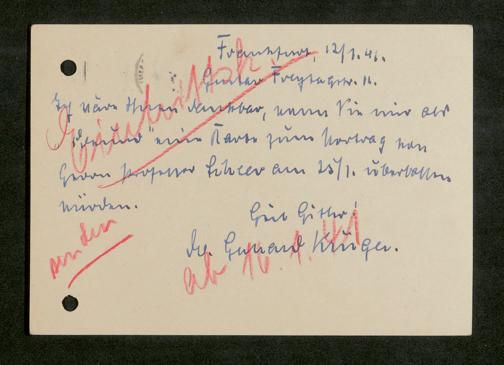 Frankfurt, 12/1.41.
Gustav Freytagstr. 11.
Ich wäre Ihnen dankbar, wenn Sie mir als
"Freund" eine Karte zum Vortrag von
Herrn Professor am 25/1. überlassen
würden.
Heil Hitler!
Dr. Gerhard Krüger.
Eintrittsk.
senden
ab 16.1.41